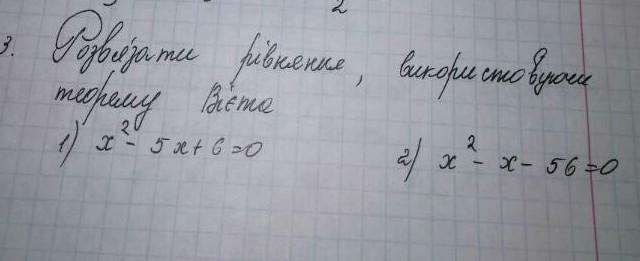 3. Розв'язати рівняння, використовуючи
теорему Вієта
1) x² - 5x + 6 = 0
2) x² - x - 56 = 0